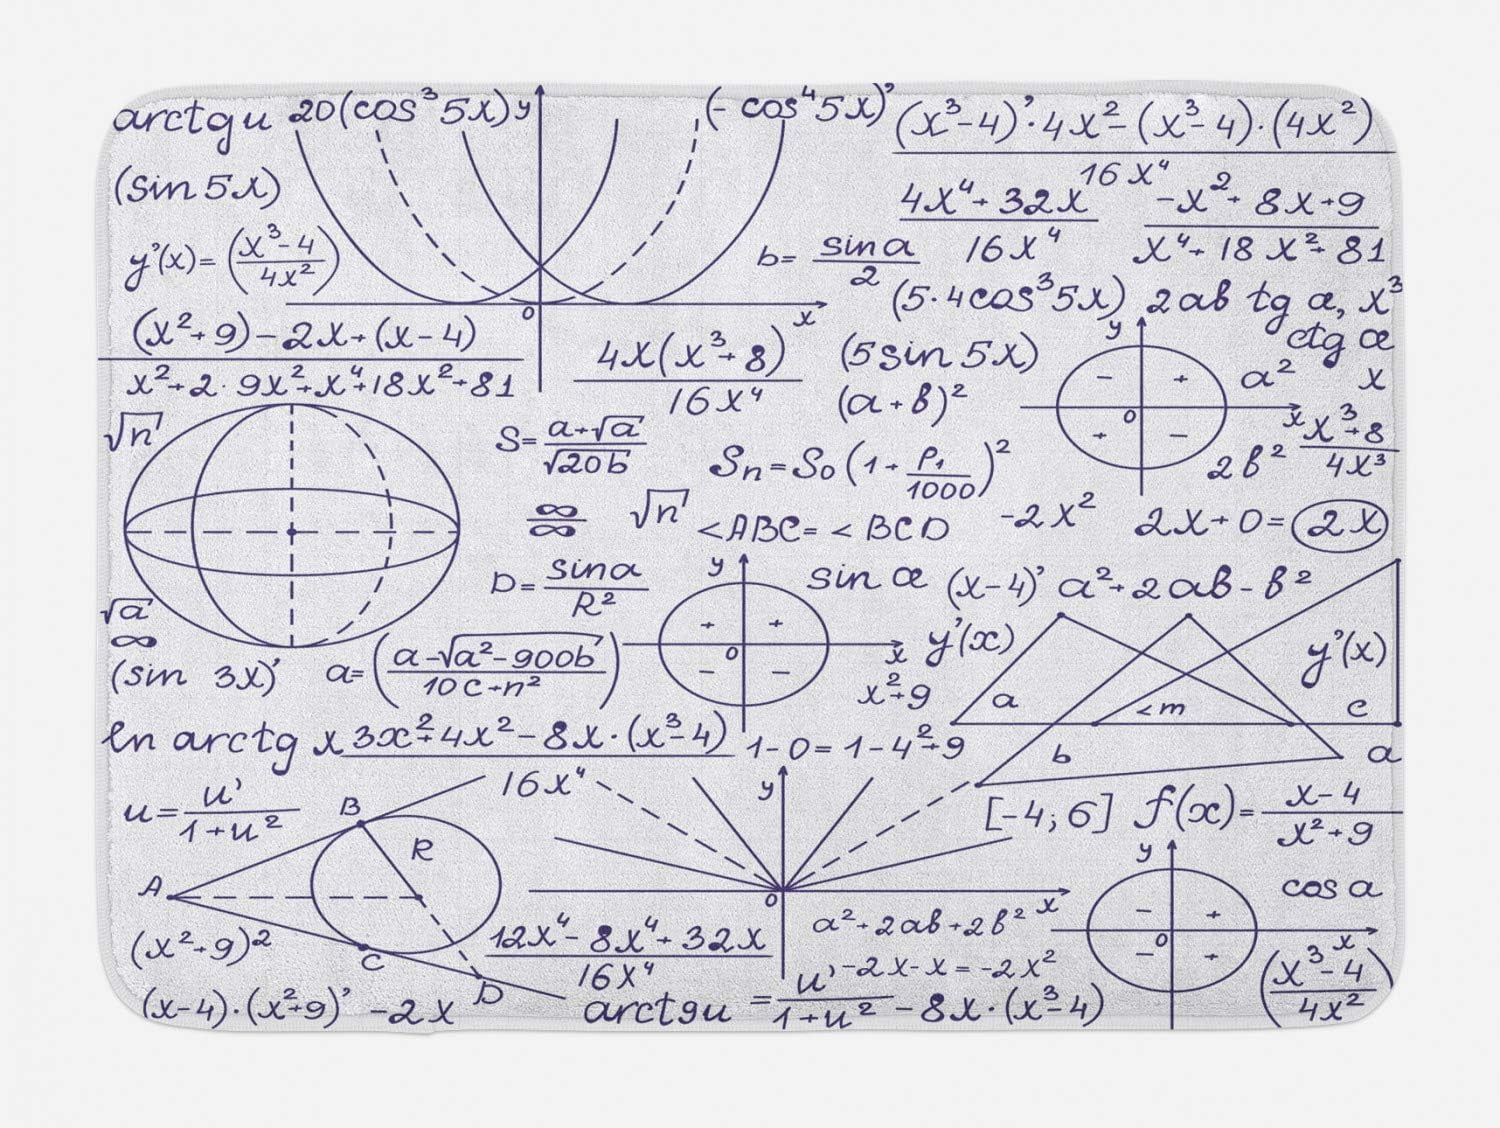 arctg u 20(cos³5x) y (- cos⁴5x)' (x³-4)'·4x²-(x³-4)·(4x²)
16x⁴
(sin 5x)
4x⁴+32x
16x⁴
-x²+8x+9
x⁴+18x²+81
y'(x)=(x³-4 / 4x²)
b= sin a / 2
(5·4cos³5x) 2ab tg æ, x³
0 x
(x²+9)-2x+(x-4)
x²+2·9x²+x⁴+18x²+81
4x(x³+8)
16x⁴
(5sin 5x)
y
ctg æ
- +
+ -
0 x
a² x
(a+b)²
√n
S= a+√a / √20b
Sn=So(1+ P₁/1000)²
2b²
x³+8
4x³
∞
∞
√n
<ABC= <BCD
-2x² 2x+0= 2x
D= sin a / R²
y
sin æ (x-4)' a²+2ab-b²
√a
∞
+ +
- -
0 x
y'(x)
y'(x)
(sin 3x)'
a=(a-√a²-900b / 10c+n²)
x²+9
a <m c
ln arctg x 3x²+4x²-8x·(x³-4)
16x⁴
1-0=1-4²+9
b a
u= u' / 1+u²
B R
y
[-4;6] f(x)= x-4 / x²+9
A
y
cos a
0 x
- +
- +
0 x
(x²+9)²
C
D
12x⁴-8x⁴+32x
16x⁴
a²+2ab+2b²
-2x-x=-2x²
(x³-4 / 4x²)
(x-4)·(x²+9)' -2x
arctgu = u' / 1+u² -8x·(x³-4)